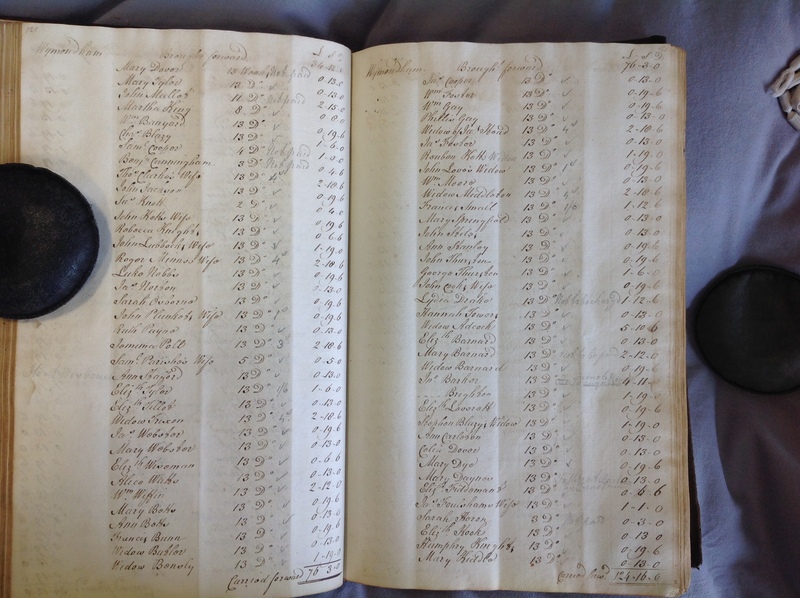 Wymondham Brought forward
£ s d
Mary Dover 13 Weeks 0-13-0
Mary Tylor 13 Do
John Mallot 11 Do 0-13-0
Martha King 8 Do 2-15-0
Wm Banyard 13 Do 0-8-0
Eliz. Blazy 13 Do 0-19-6
Saml Cooper 4 Do 1-6-0
Benj. Cunningham 3 Do
Thos Clarke's Wife 13 Do 0-4-6
John Jackson 13 Do 2-18-6
Jno Knott 2 Do 0-19-6
John Kett's Wife 13 Do 0-4-0
Rebecca Knights 13 Do 0-19-6
John Lubbock's Wife 13 Do 0-6-6
Roger Minns's Wife 13 Do 1-19-0
Luke Nobbs 13 Do 2-18-6
Jas Norton 13 Do 0-19-6
Sarah Osborne 13 Do 0-13-0
John Plunket's Wife 13 Do 0-19-6
Ruth Payne 13 Do 0-13-0
Jemima Pett 13 Do 2-18-6
Saml Parish's Wife 5 Do 0-5-0
Ann Frazer 13 Do 0-13-0
Elizth Tylor 13 Do 1-6-0
Elizth Tillot 13 Do 0-13-0
Widow Trixon 13 Do 2-18-6
Jas Webster 13 Do 0-19-6
Mary Webster 13 Do 0-13-0
Elizth Wiseman 13 Do 0-6-6
Alice Watts 13 Do 2-12-0
Wm Wifflin 13 Do 0-19-6
Mary Botts 13 Do 0-13-6
Ann Botts 13 Do 0-19-6
Frances Bunn 13 Do 0-13-0
Widow Butler 13 Do 1-19-0
Widow Bensly 13 Do
Carried forward 76 3-0
Wymondham Brought forward
£ s d
76-3-0
Jas Cooper 13 Do 0-13-0
Wm Foster 13 Do 0-19-6
Wm Gay 13 Do 0-19-6
Phillis Gay 13 Do 0-13-0
Widow of Jas Hard 13 Do 2-18-6
Jas Foster 13 Do 0-13-0
Reuben Kett's Widow 13 Do 1-19-0
John Love's Widow 13 Do 0-19-6
Wm Moore 13 Do 0-13-0
Widow Middleton 13 Do 2-18-6
Frances Small 13 Do 1-12-6
Mary Springfield 13 Do 0-13-0
John Steele 13 Do 0-13-0
Ann Stanley 13 Do 0-19-6
John Thurston 13 Do 0-19-6
George Thurston 13 Do 1-6-0
John Cook's Wife 13 Do 0-19-6
Lydia Drake 13 Do 1-12-6
Hannah Tower 13 Do 0-13-0
Widow Adcock 13 Do 5-10-6
Elizth Barnard 13 Do 0-13-0
Mary Barnard 13 Do 2-12-0
Widow Barnard 13 Do 0-19-6
Jas Barker 13 Do 4-11-
Brighton 13 Do 1-19-0
Elizth Leverett 13 Do 0-19-6
Stephen Blazy's Widow 13 Do 1-19-0
Ann Carleton 13 Do 0-13-0
Celia Dover 13 Do 0-13-0
Mary Dye 13 Do 0-19-6
Mary Daynes 13 Do 0-13-0
Elizth Fiddaman 13 Do 0-6-6
Jas Foulsham's Wife 13 Do 1-1-0
Sarah Heron 3 Do 0-3-0
Elizth Hook 13 Do 0 13 0
Humphry Knights 13 Do 0-19-6
Mary Kiddle 13 Do 0-13-0
Carried forwd 124-16-6